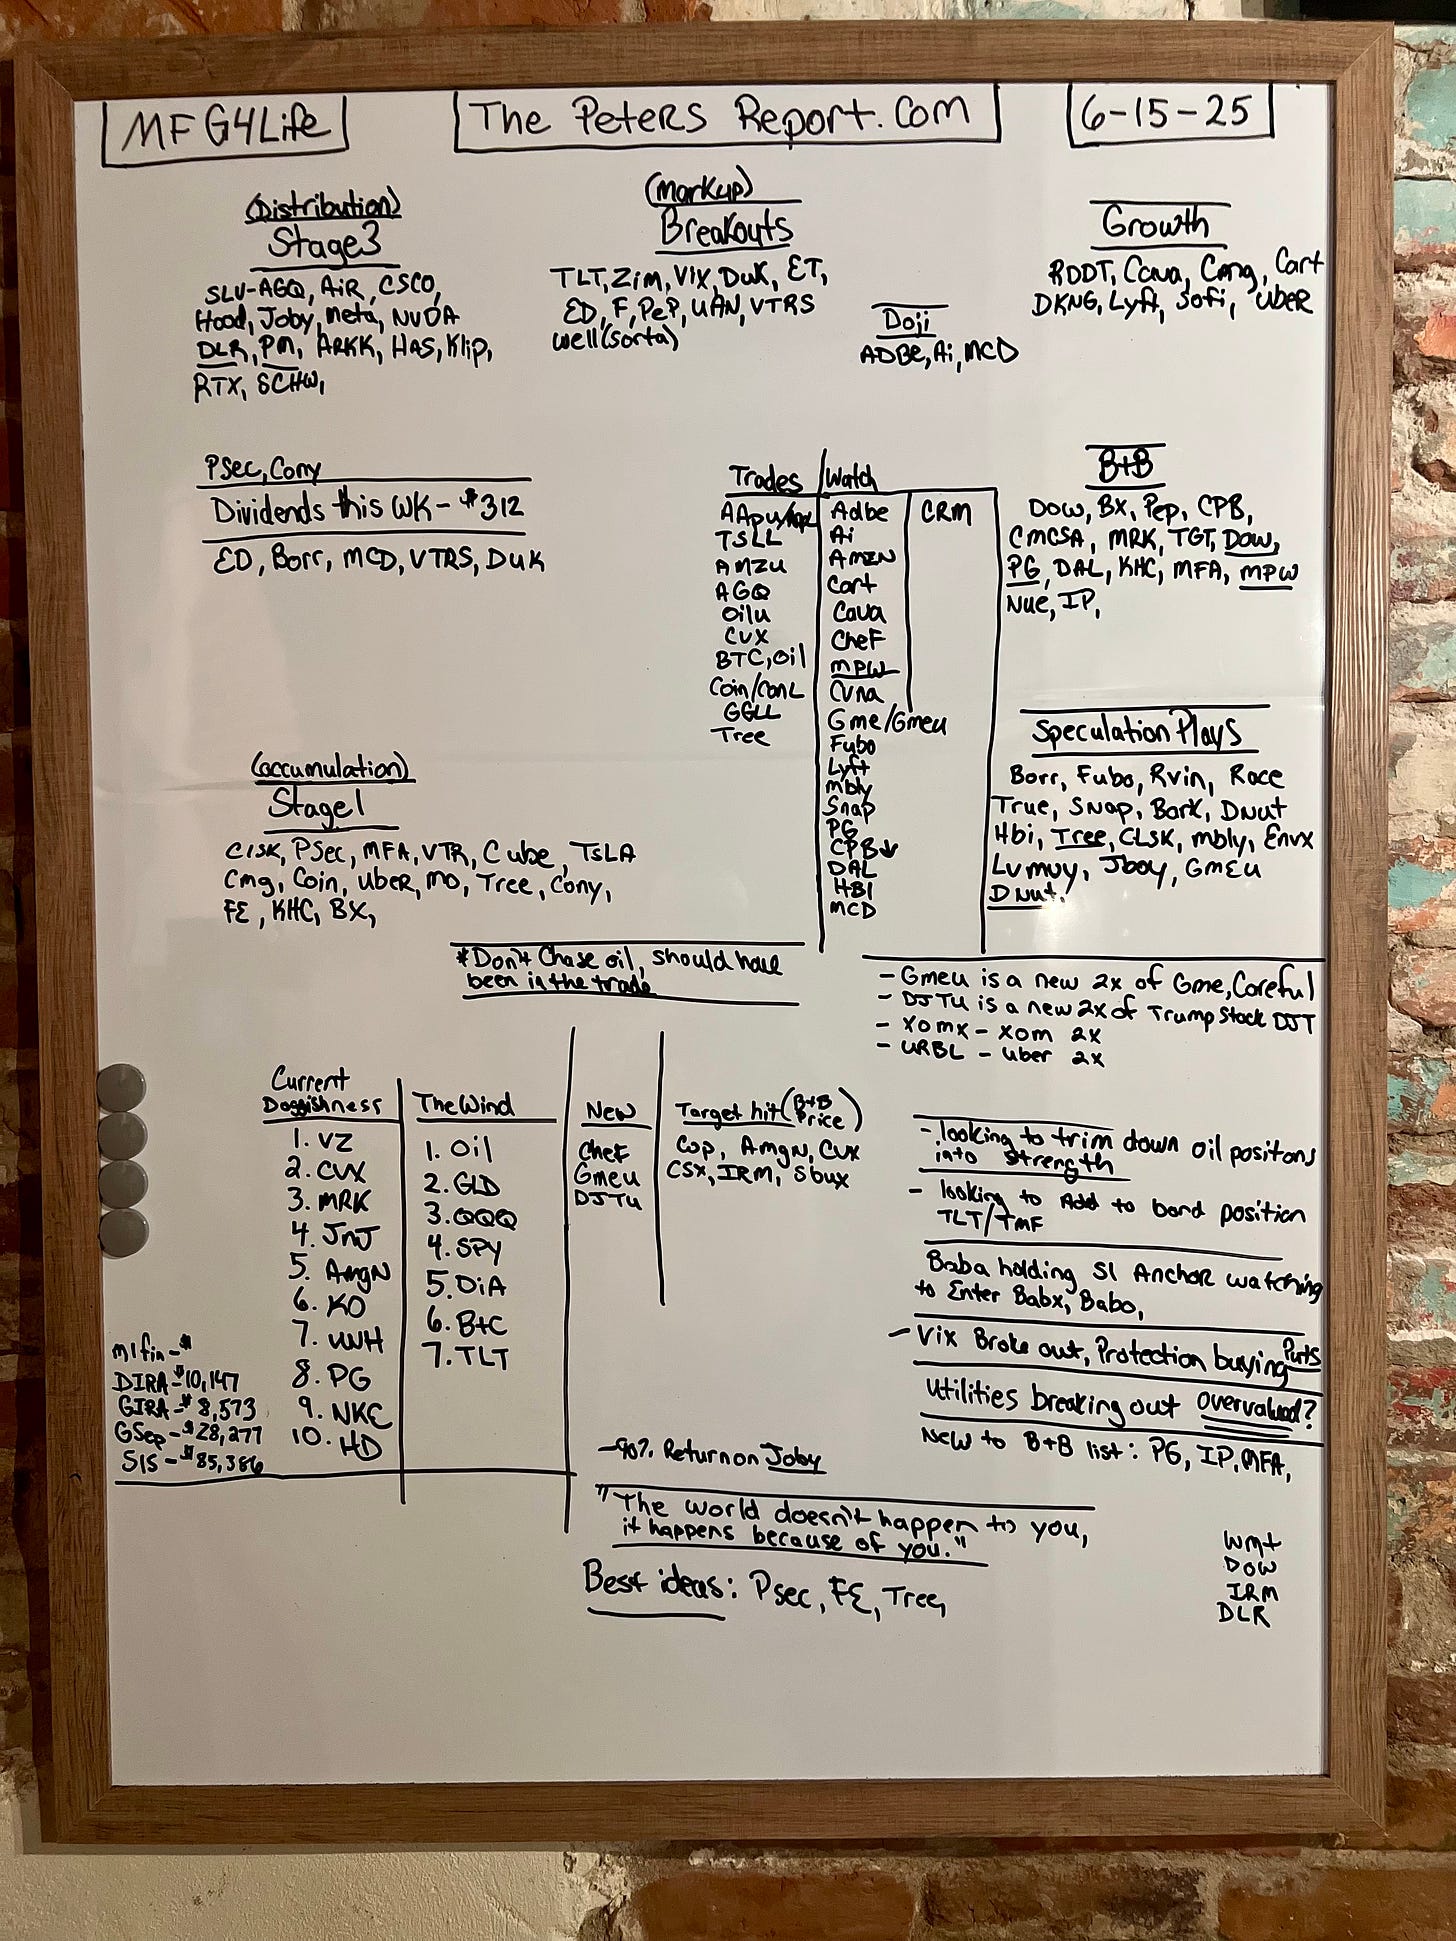 MFG4Life
The Peters Report.com
6-15-25
(Distribution)
Stage3
SLV-AGQ, AiR, CSCO,
Hood, Joby, meta, NVDA
DLR, PM, ARKK, HAS, Klip,
RTX, SCHW,
(markup)
Breakouts
TLT, Zim, Vix, Duk, ET,
ED, F, PeP, UAN, VTRS
well(sorta)
Doji
ADBe, Ai, MCD
Growth
RDDT, Cava, Cmg, Cart
DKNG, Lyft, Sofi, uBER
Psec, Cony
Dividends this WK - $312
ED, Borr, MCD, VTRS, DuK
Trades
AApu/
TSLL
AMZU
AGQ
Oilu
CVX
BTC, Oil
Coin/ConL
GGLL
Tree
Watch
Adbe
Ai
AMZN
Cart
Cava
CheF
MPW
Cvna
Gme/Gmeu
Fubo
Lyft
mbly
Snap
PG
CPB↓
DAL
HBI
MCD
CRM
B+B
Dow, BX, Pep, CPB,
CMCSA, MRK, TGT, Dow,
PG, DAL, KHC, MFA, MPW
Nue, IP,
Speculation Plays
Borr, Fubo, Rvin, Race
True, Snap, Bark, Dnut
Hbi, Tree, CLSK, mbly, Envx
Lvmuy, Jboy, GmEu
Dnut.
(accumulation)
Stage1
ClSK, PSec, MFA, VTR, Cube, TSLA
Cmg, Coin, uber, mo, Tree, Cony,
FE, KHC, BX,
*Don't Chase oil, should have
been in the trade
- Gmeu is a new 2x of Gme, Careful
- DJTU is a new 2x of Trump Stock DJT
- Xomx - Xom 2x
- URBL - uber 2x
Current
Doggishness
1. VZ
2. CVX
3. MRK
4. JnJ
5. AmgN
6. KO
7. UNH
8. PG
9. NKE
10. HD
The Wind
1. Oil
2. GLD
3. QQQ
4. SPY
5. DiA
6. BtC
7. TLT
New
CheF
Gmeu
DJTU
Target hit (B+B Price)
Cop, AmgN, CVX
CSX, IRM, Sbux
- looking to trim down oil positons
into strength
- looking to Add to bond position
TLT/TMF
Baba holding S1 Anchor watching
to Enter Babx, Babo,
- Vix Broke out, Protection buying Puts
Utilities breaking out overvalued?
New to B+B list: PG, IP, MFA,
m1fin - $
DIRA - $10,147
GIRA - $8,573
GSep - $28,277
SIS - $85,386
-90% Return on Joby
"The world doesn't happen to you,
it happens because of you."
Best ideas: Psec, FE, Tree,
Wmt
DOW
IRM
DLR